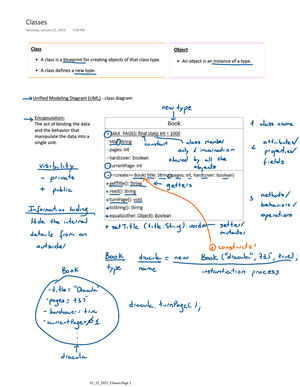 Classes
Saturday, January 21, 2023 7:08 PM
Class
• A class is a blueprint for creating objects of that class type.
• A class defines a new type.
Object
• An object is an instance of a type.
→ Unified Modeling Diagram (UML) - class diagram
new type
→ Encapsulation:
The act of binding the data and the behavior that manipulates the data into a single unit.
Book
+ MAX_PAGES: final static int = 1000
- title: String
- pages: int
- hardcover: boolean
- currentPage: int
constant
class member
only 1 incarnation
shared by all the objects
+ <create>> Book( title: String, pages: int, hardcover: boolean)
+ getTitle(): String
+ read(): String
+ turnPage(): void
+ toString(): String
+ equals(other: Object): Boolean
getters
+ setTitle (title: String): void
setters/
mutators
1 class name
2 attributes/
properties/
fields
3 methods/
behaviors/
operations
visibility
- private
+ public
Information hiding
Hide the internal
details from an
outsider
constructor
Book dracula = new Book ("dracula", 735, true);
type name instantiation process
Book
- title = "Dracula"
- pages = 735
- hardcover = true
- currentPage = 0 1
dracula
dracula.turnPage( );
01_21_2023_Classes Page 2